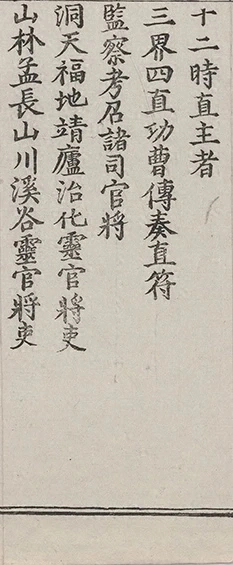 十二時直主者
三界四直功曹傳奏直符
監察考召諸司官將
洞天福地靖廬治化靈官將吏
山林孟長山川溪谷靈官將吏